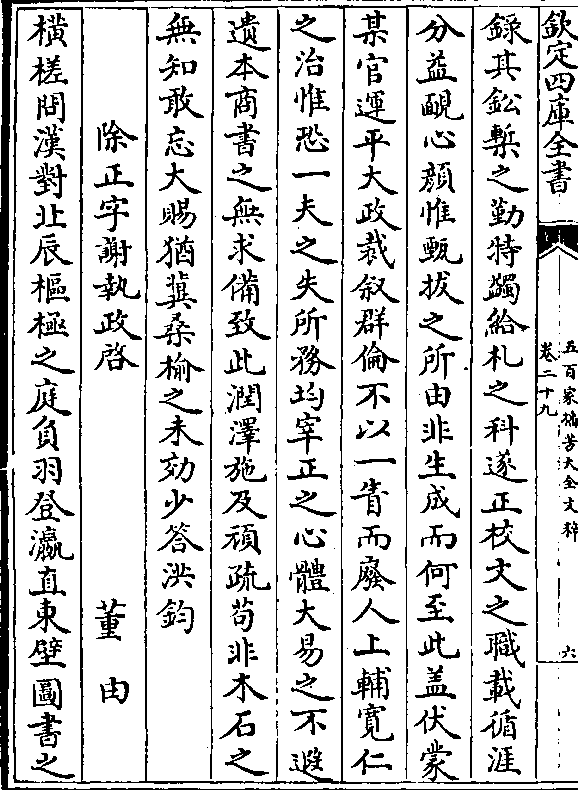 欽定四庫全書
五百家播芳大全文粹
卷二十九
六
錄其鈆槧之勤特蠲給札之科遂正校文之職載循涯
分益靦心顔惟甄拔之所由非生成而何至此盖伏蒙
某官運平大政裁叙群倫不以一眚而廢人上輔寛仁
之治惟恐一夫之失所務均宰正之心體大易之不遐
遺本商書之無求備致此潤澤施及頑疏苟非木石之
無知敢忘大賜猶冀桑榆之未効少答洪鈞
除正字謝執政啓 董由
橫槎問漢對北辰樞極之庭負羽登瀛直東壁圖書之